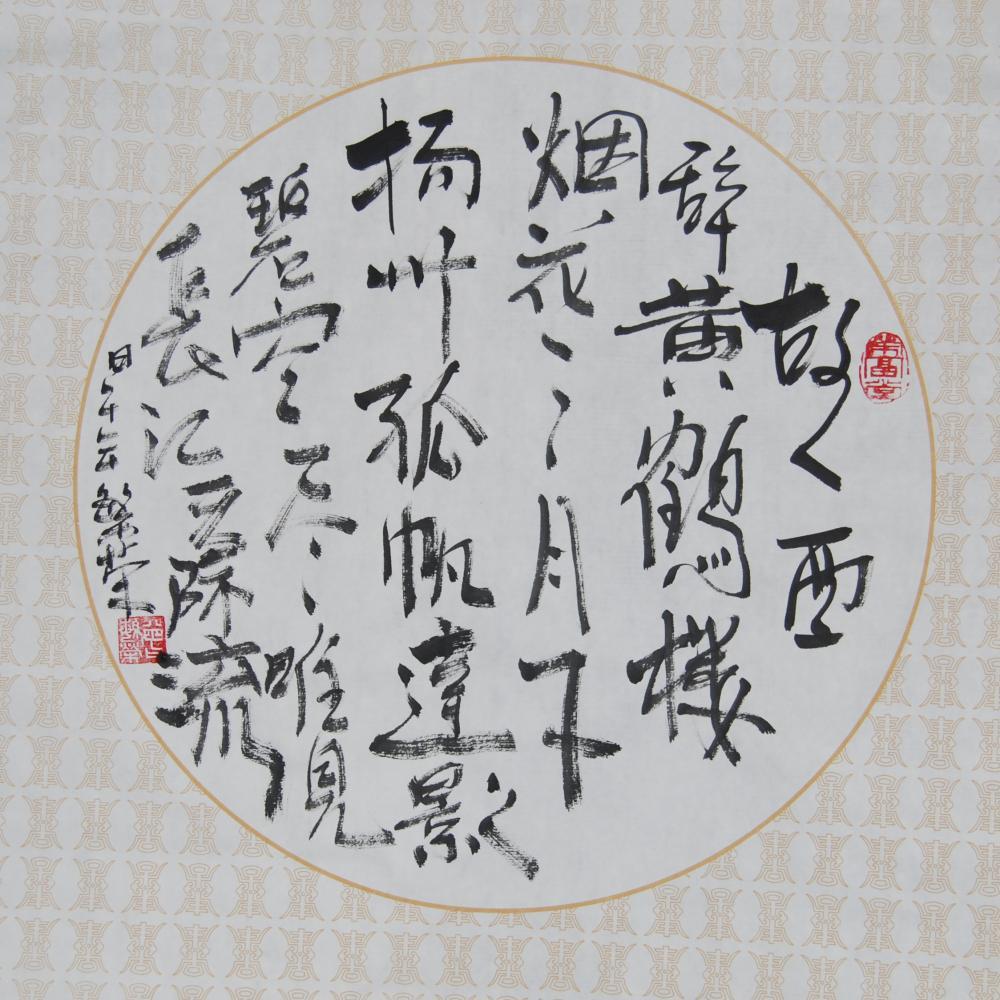 故人西
辞黄鶴樓
烟花三月下
揚州孤帆遠影
碧空尽唯見
長江天際流